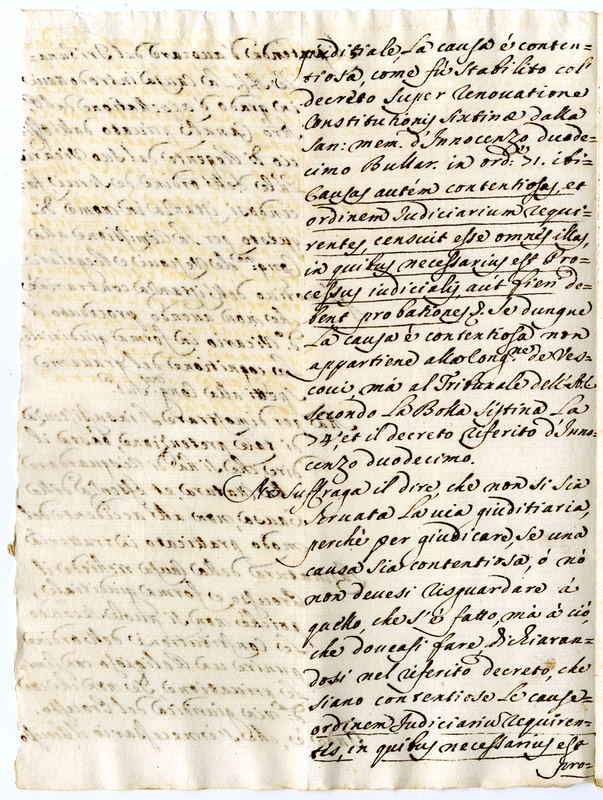 giuditiale, La causa è conten=
tiosa, come fù stabilito col
decreto super renovatione
Constitutionis sixtinæ dalla
San: mem. d'Innocenzo duode=
cimo Bullar. in ord: 71. ibi=
Causas autem contentiosas, et
ordinem Iudiciarium requi=
rentes, censuit esse omnes illas,
in quibus necessarius est Pro=
cessus iudicialis, aut fieri de=
bent probationes &. Se dunque
La causa è contentiosa non
appartiene alla Cong.ne de Ves=
coui, mà al Tribunale dell'
secondo La Bolla Sistina La
74, et il decreto riferito d'Inno=
cenzo duodecimo.
Ne suffraga il dire, che non si sia
seruata La uia giuditiaria,
perche per giudicare, se una
causa sia contentiosa, ó nò
non deuesi risguardare à
quello, che s'è fatto, mà à ciò,
che doueasi fare, dichiaran=
dosi nel riferito decreto, che
siano contentiose Le cause=
ordinem Iudiciariũ requiren=
tes, in quibus necessarius est
pro=